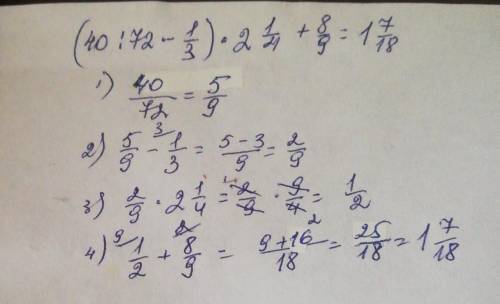 (40:72 - 1/3) · 2 1/4 + 8/9 = 1 7/18
1) 40/72 = 5/9
2) 5/9 - 3 1/3 = 5-3/9 = 2/9
3) 2/9 · 2 1/4 = 2/9 · 9/4 = 1/2
4) 9 1/2 + 2 8/9 = 9+16/18 = 25/18 = 1 7/18